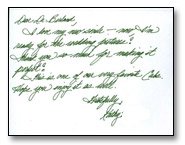 Dear Dr. Borland,
I love my new smile - now I'm
ready for the wedding pictures!
Thank you so much for making it
perfect!
this is one of our very favorite Cakes.
Hope you enjoy it as well.
Gratefully,